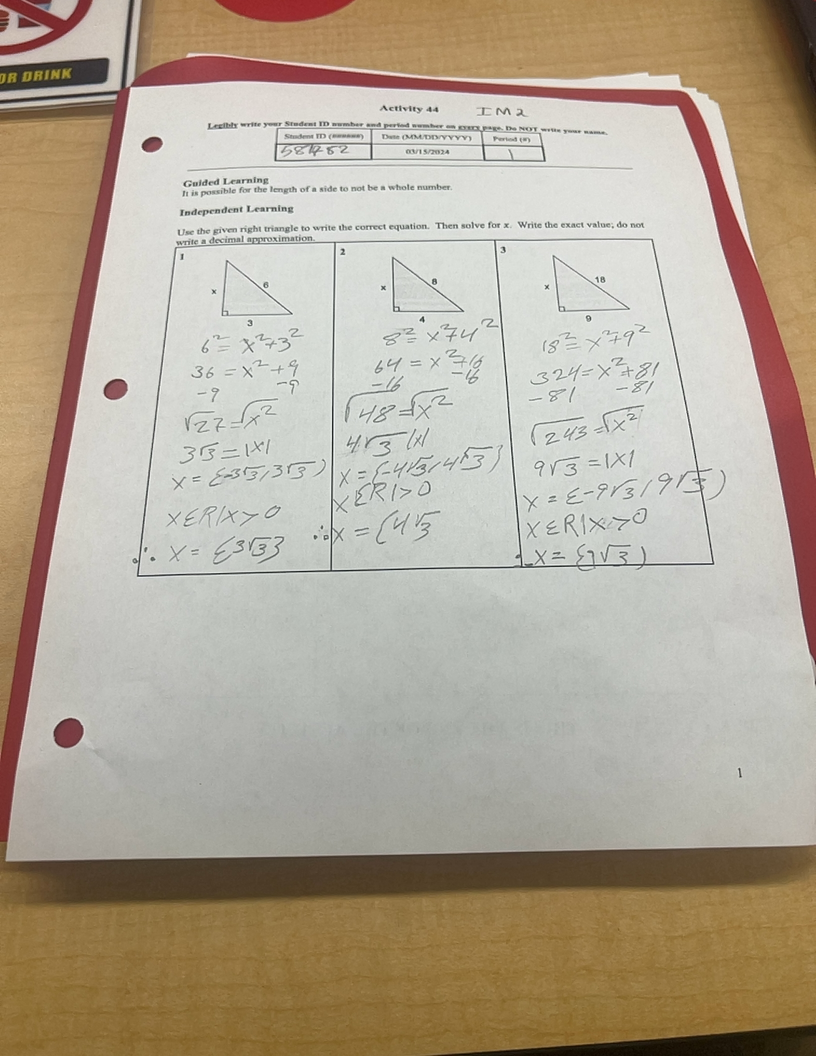 OR DRINK
Activity 44 IM2
Legibly write your Student ID number and period number on every page. Do NOT write your name.
Student ID (######) Date (MM/DD/YYYY) Period (#)
03/15/2024 1
Guided Learning
It is possible for the length of a side to not be a whole number.
Independent Learning
Use the given right triangle to write the correct equation. Then solve for x. Write the exact value; do not
write a decimal approximation.
1
x 6
3
6² = x²+3²
36 = x² + 9
-9 -9
√27 = √x²
3√3 = |x|
x = {-3√3, 3√3}
x ε R | x > 0
∴ x = {3√3}
2
x 8
4
8² = x²+4²
64 = x²+16
-16 -16
√48 = √x²
4√3 |x|
x = {-4√3, 4√3}
x ε R | > 0
∴ x = {4√3
3
x 18
9
18² = x²+9²
324 = x²+81
-81 -81
√243 = √x²
9√3 = |x|
x = {-9√3, 9√3}
x ε R | x > 0
x = {9√3}
1